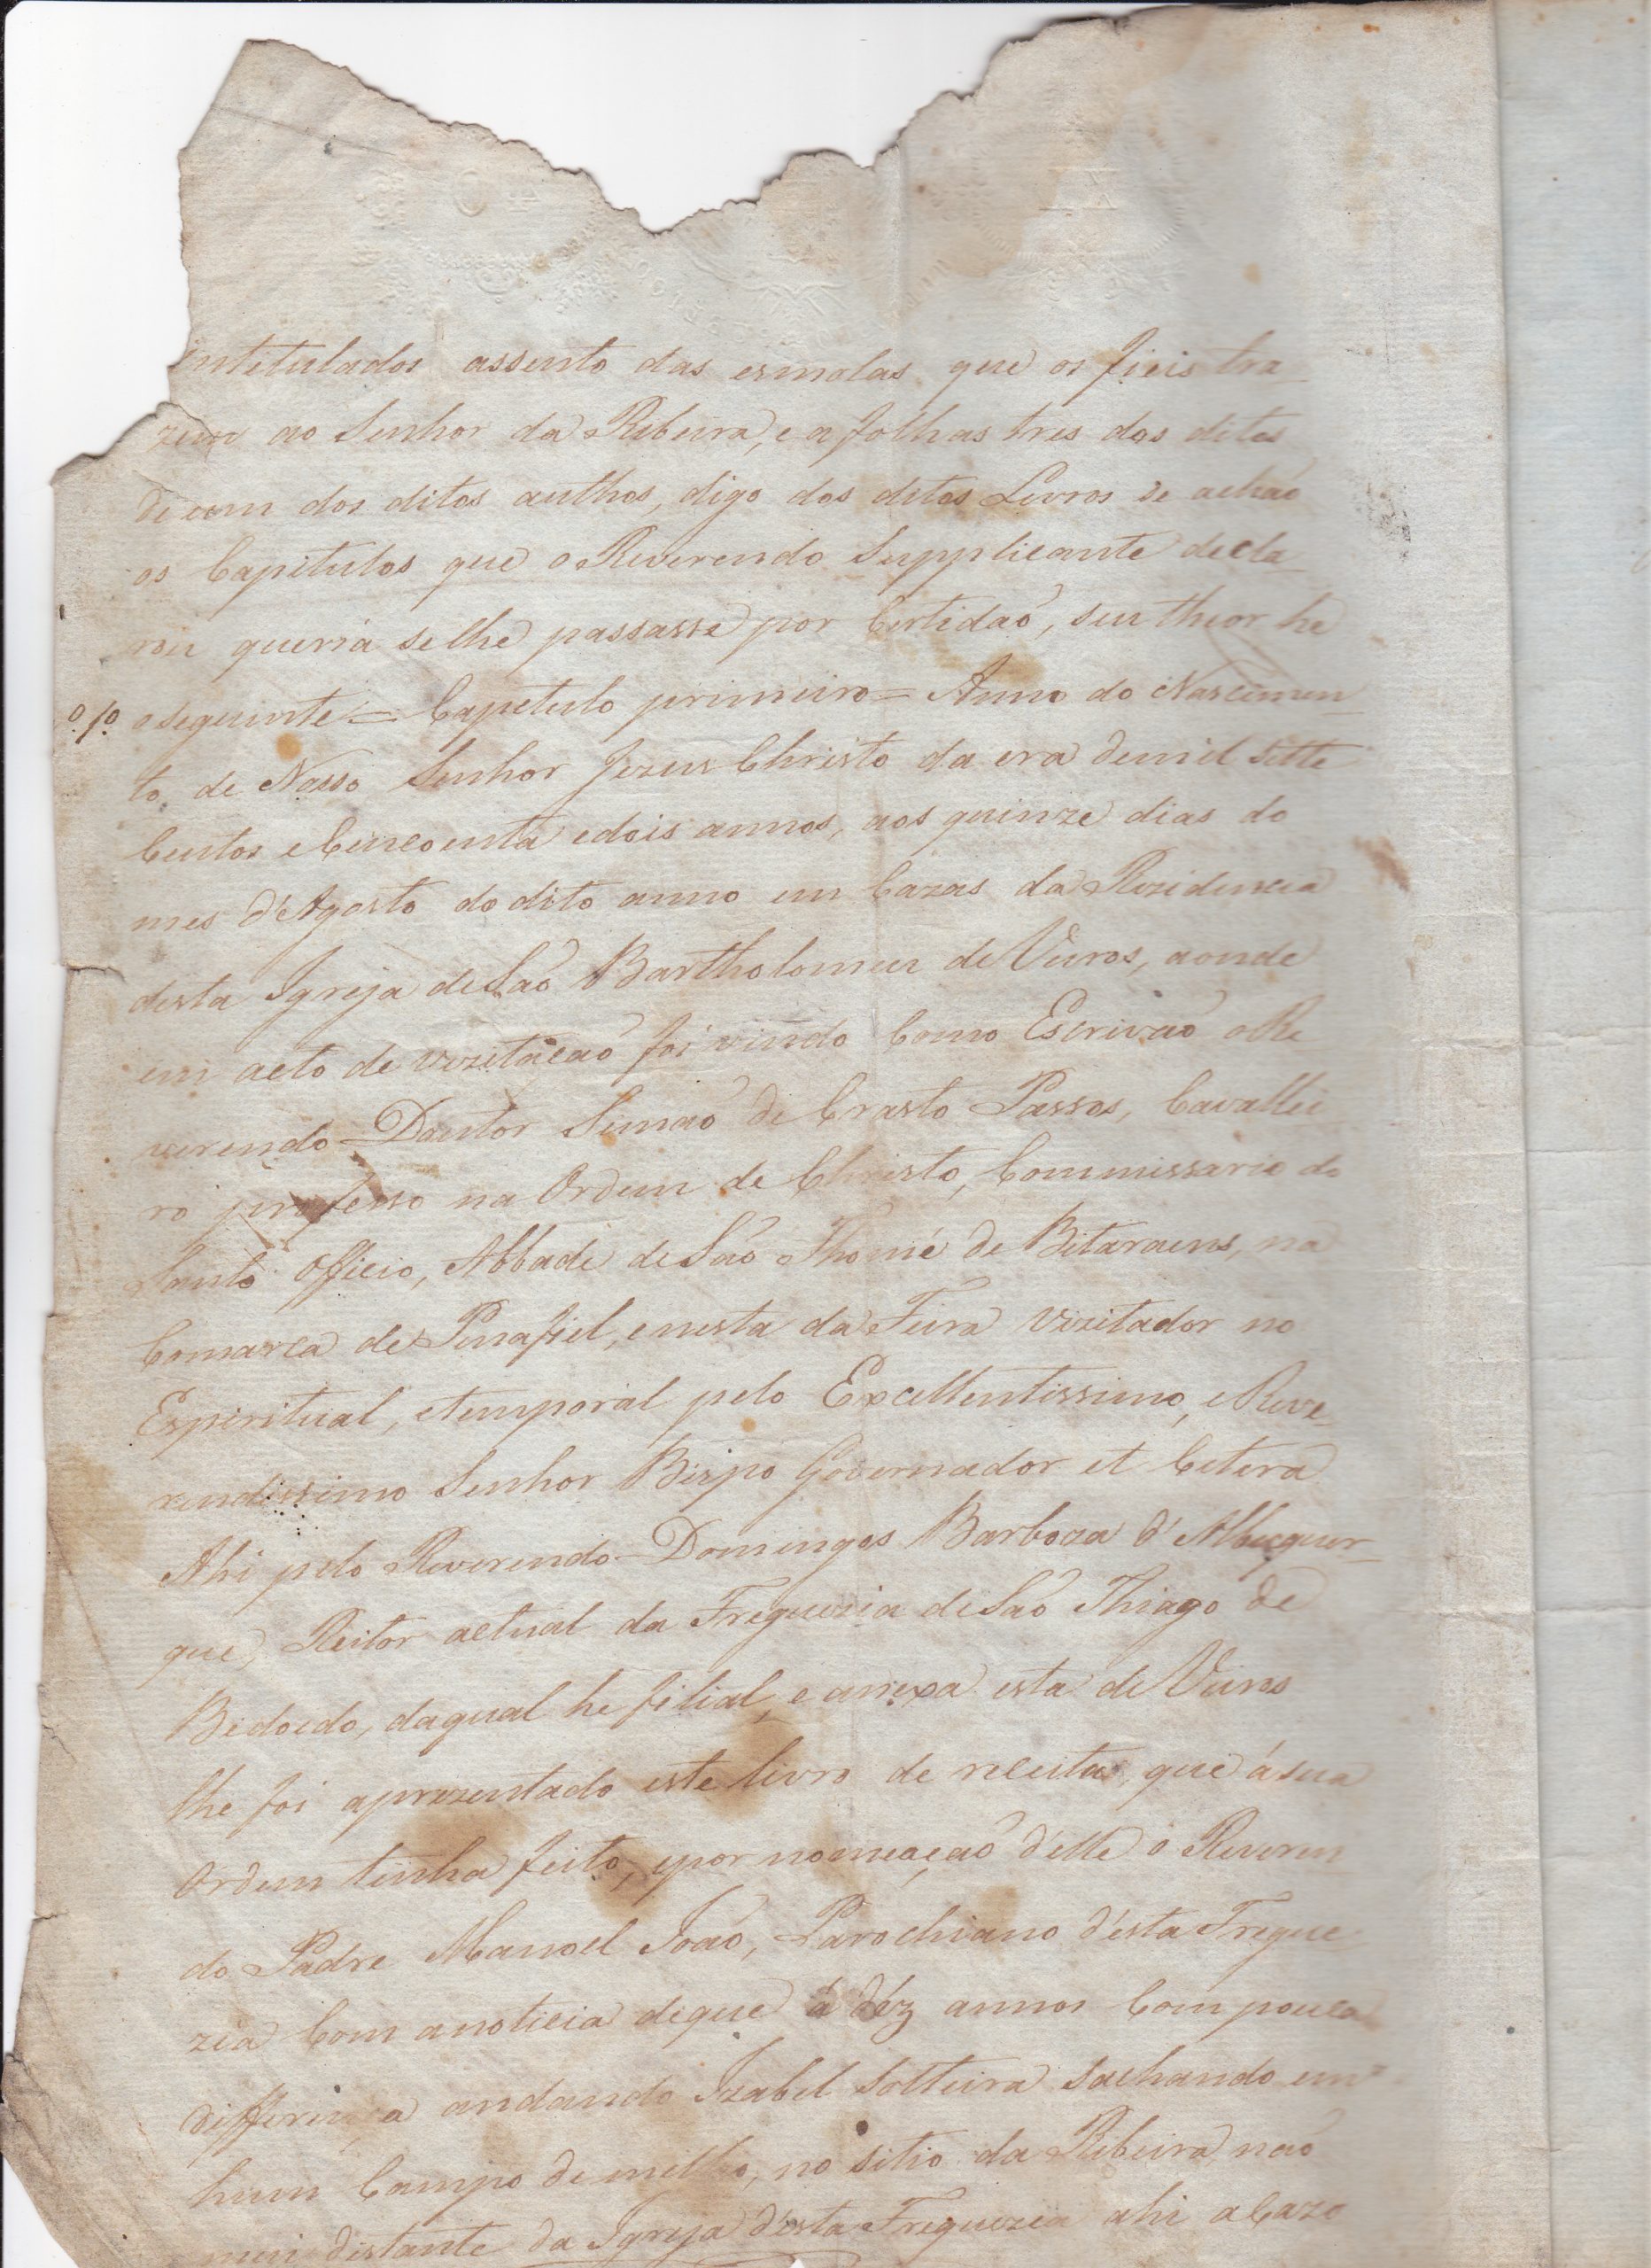 intitulados assento das esmolas que os fieis tra_
zem ao Senhor da Ribeira, e a folhas tres dos ditos
de cum dos ditos authos, digo dos ditos Livros se achaõ
os Capitulos que o Reverendo Supplicante decla_
rou queria selhe passasse por Certidaõ, seu theor he
oseguinte = Capetulo primeiro = Anno do Nascimen_
to, de Nosso Senhor Jezus Christo da era demil Sette
Centos e Cincoenta edois annos, aos quinze dias do
mes d'Agosto do dito anno em Cazas da Rezidencia
desta Igreja deSaõ Bartholomeu de Veiros, aonde
em acto de vizitaçaõ foi vindo Como Escrivaõ oRe
verendo Doutor Simaõ de Crasto Passos, Cavallei
ro professo na Ordem de Christo, Commissario do
Santo Officio, Abbade deSaõ Thomé de Bitaraens, na
Comarca de Penafiel, enesta da Feira Vizitador no
Espiritual, etemporal pelo Excellentissimo, eReve_
rendissimo Senhor Bispo Governador et Cetera
Ahi pelo Reverendo Domingos Barboza d'Albuquer_
que, Reitor actual da Freguezia deSaõ Thiago de
Bedoedo, daqual he filial, e annexa esta de Veiros
lhe foi aprezentado este livro de receitas, que ásua
Ordem tinha feito, epor nomeaçaõ d'elle o Reveren
do Padre Manoel Joaõ, Parochiano d'esta Fregue
zia Com anoticia deque á déz annos Com pouca
differença andando Izabel Solteira Sachando em
hum Campo de milho, no sitio da Ribeira, naõ
mui distante da Igreja d'esta Freguezia ahi a Cazo